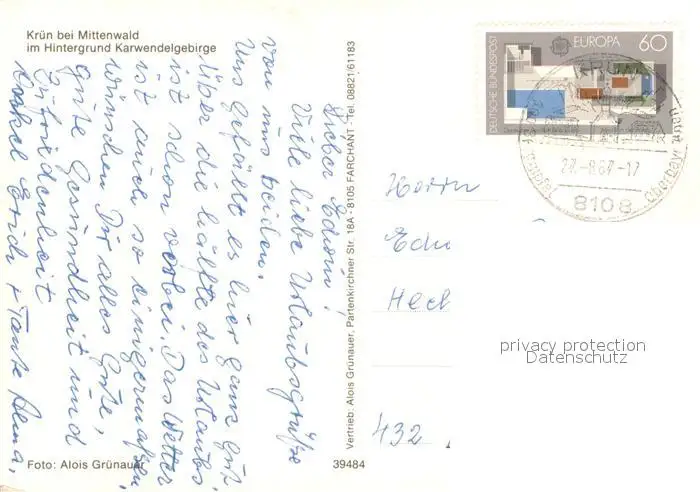 Krün bei Mittenwald
im Hintergrund Karwendelgebirge
Lieber Edwin!
Viele liebe Urlaubsgrüße
von uns beiden.
Uns gefällt es hier ganz gut
Über die hälfte des Urlaubs
ist schon vorbei. Das Wetter
ist auch so einigermaßen,
wünschen Dir alles Gute,
gute Gesundheit und
Zufriedenheit
Onkel Erich + Tante Alma,
Foto: Alois Grünauer
Vertrieb: Alois Grünauer, Partenkirchner Str. 18A - 8105 FARCHANT - Tel. 08821/61183
39484
DEUTSCHE BUNDESPOST
EUROPA 60
KRÜN
8108
Oberbay
Herrn
432
privacy protection
Datenschutz